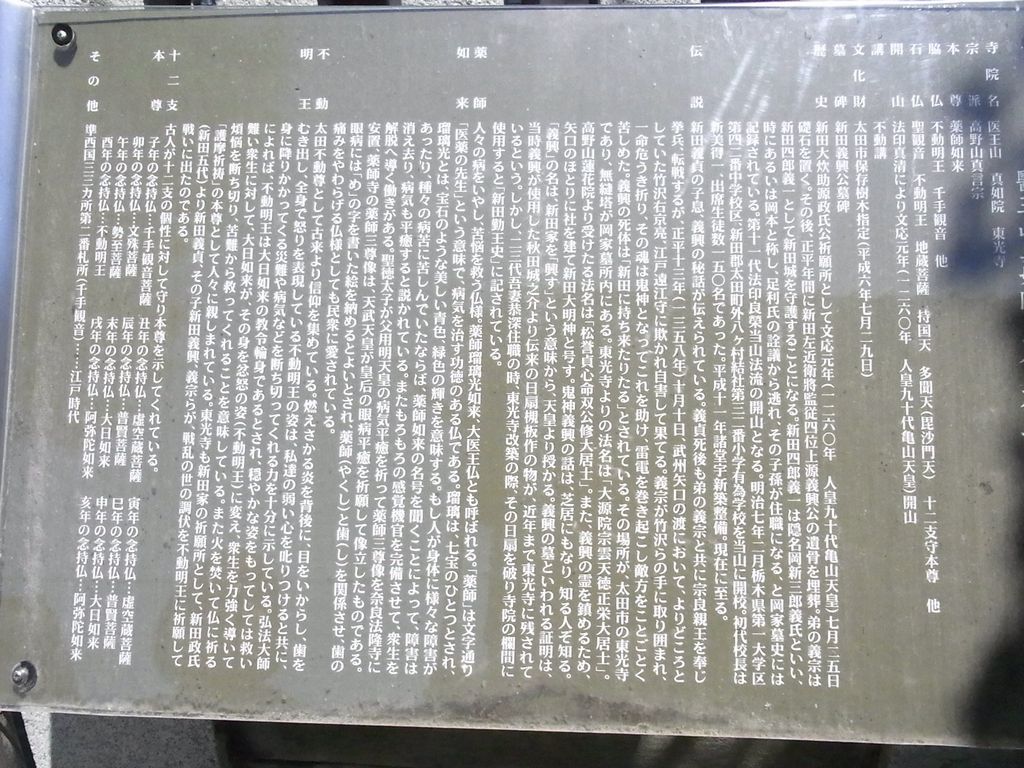 寺院名 医王山 真如院 東光寺
宗派 高野山真言宗
本尊 薬師如来
脇仏 不動明王 千手観音 他
石仏 聖観音 不動明王 地蔵菩薩 持国天 多聞天(毘沙門天) 十二支守本尊 他
開山 法印真清により文応元年(一二六〇年 人皇九十代亀山天皇)開山
講 不動講
文化財 太田市保存樹木指定(平成六年七月二九日)
墓碑 新田義興公墓碑
歴史 新田大炊助源政氏公祈願所として文応元年(一二六〇年 人皇九十代亀山天皇)七月二五日
礎石を置く。その後、正平年間に新田左近衛將監従四位上源義興公の遺骨を埋葬。弟の義宗は
新田四郎義一として新田城を守護することになる。新田四郎義一は隠名岡新三郎義氏といい、
時にあるいは岡本と称し、足利氏の詮議から逃れ、その子孫が住職になる、と岡家墓史には
記録されている。第十一代法印良榮当山法流の開山となる。明治七年二月栃木県第一大学区
第四二番中学校区新田郡太田町外八ヶ村結社第三二番小学有為学校を当山に開校。初代校長は
新美得一、出席生徒数一五〇名であった。平成十一年諸堂宇新築整備。現在に至る。
伝説 新田義貞の子息、義興の秘話が伝えられている。義貞死後も弟の義宗と共に宗良親王を奉じ
挙兵、転戦するが、正平十三年(一三五八年)十月十日、武州矢口の渡において、よりどころと
していた竹沢右京亮、江戸遠江守に欺かれ自害して果てる。義宗が竹沢らの手に取り囲まれ、
一命危うき折り、その魂は鬼神となってこれを助け、雷電を巻き起こし敵方をことごとく
苦しめた。義興の死体は「新田に持ち来たりたる」とされている。その場所が、太田市の東光寺
であり、無縫塔が岡家墓所内にある。東光寺よりの法名は「大源院宗雲天徳正栄大居士」。
高野山蓮華院より受けたる法名は「松誉貞心命双公修大居士」。また、義興の霊を鎮めるため、
矢口のほとりに社を建て新田大明神と号す。鬼神義興の話は、芝居にもなり、知る人ぞ知る。
「義興」の名は、新田家を「興す」という意味から、天皇より授かる。義興の墓といわれる証明は、
当時義興公が使用した秋田城之介より伝来の日扇襖板作の物が、近年まで東光寺に残されて
いるという。しかし、二三代吾妻恭深住職の時、東光寺改築の際、その日扇を破り寺院の欄間に
使用すると「新田勤王史」に記されている。
薬師如来 人々の病をいやし、苦悩を救う仏様。薬師瑠璃光如来、大医王仏とも呼ばれる。「薬師」は文字通り
「医薬の先生」という意味で、病気を治す功徳のある仏である。瑠璃は、七宝のひとつとされ、
瑠璃光とは、宝石のような美しい青色、緑色の輝きを意味する。もし人が身体に様々な障害が
あったり、種々の病苦に苦しんでいたならば、薬師如来の名号を聞くことによって、障害は
消え去り、病気も平癒すると説かれている。またもろもろの感覚機官を完備させて、衆生を
解脱へ導く働きがある。聖徳太子が父用明天皇の病気平癒を祈って薬師三尊像を奈良法隆寺に
安置。薬師寺の薬師三尊像は、天武天皇が皇后の眼病平癒を祈願して像立したものである。
眼病には「め」の字を書いた絵を納めるとよいとされ、薬師(やくし)と歯(し)を関係させ、歯の
痛みをやわらげる仏様としても民衆に愛されている。
不動明王 太田不動尊として古来より信仰を集めている。燃えさかる炎を背後に、目をいからし、歯を
むき出し、全身で怒りを表現している不動明王の姿は、私達の弱い心を叱りつけると共に、
身に降りかかってくる災難や病気などを断ち切ってくれる力を十分に示している。弘法大師
によれば、不動明王は大日如来の教令輪身であるとされ、穏やかな姿をもってしては救い
難い衆生に対して、大日如来が、その身を忿怒の姿(不動明王)に変え、衆生を力強く導いて
煩悩を断ち切り、苦難から救ってくれることを意味している。また火を焚いて仏に祈る
「護摩祈祷」の本尊として人々に親しまれている。東光寺も新田家の祈願所として、新田政氏
(新田五代)より新田義貞、その子新田義興、義宗らが、戦乱の世の調伏を不動明王に祈願して
戦いに出たのである。
十二支本尊 古人が十二支の個性に対して守り本尊を示してくれている。
子年の念持仏…千手観音菩薩 丑年の念持仏…虚空蔵菩薩 寅年の念持仏…虚空蔵菩薩
卯年の念持仏…文殊菩薩 辰年の念持仏…普賢菩薩 巳年の念持仏…普賢菩薩
午年の念持仏…勢至菩薩 未年の念持仏…大日如来 申年の念持仏…大日如来
酉年の念持仏…不動明王 戌年の念持仏…阿弥陀如来 亥年の念持仏…阿弥陀如来
その他 準西国三三カ所第二番札所(千手観音)…江戸時代